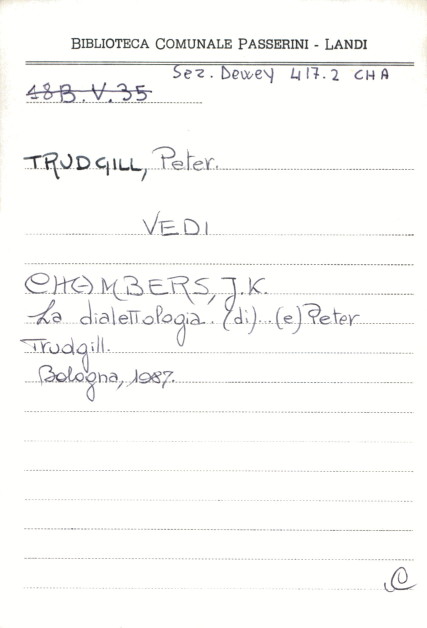 BIBLIOTECA COMUNALE PASSERINI - LANDI
Sez. Dewey 417.2 CHA
48B.V.35
TRUDGILL, Peter.
VEDI
CHAMBERS, J.K.
La dialettologia. (di)...(e) Peter
Trudgill.
Bologna, 1987.
C